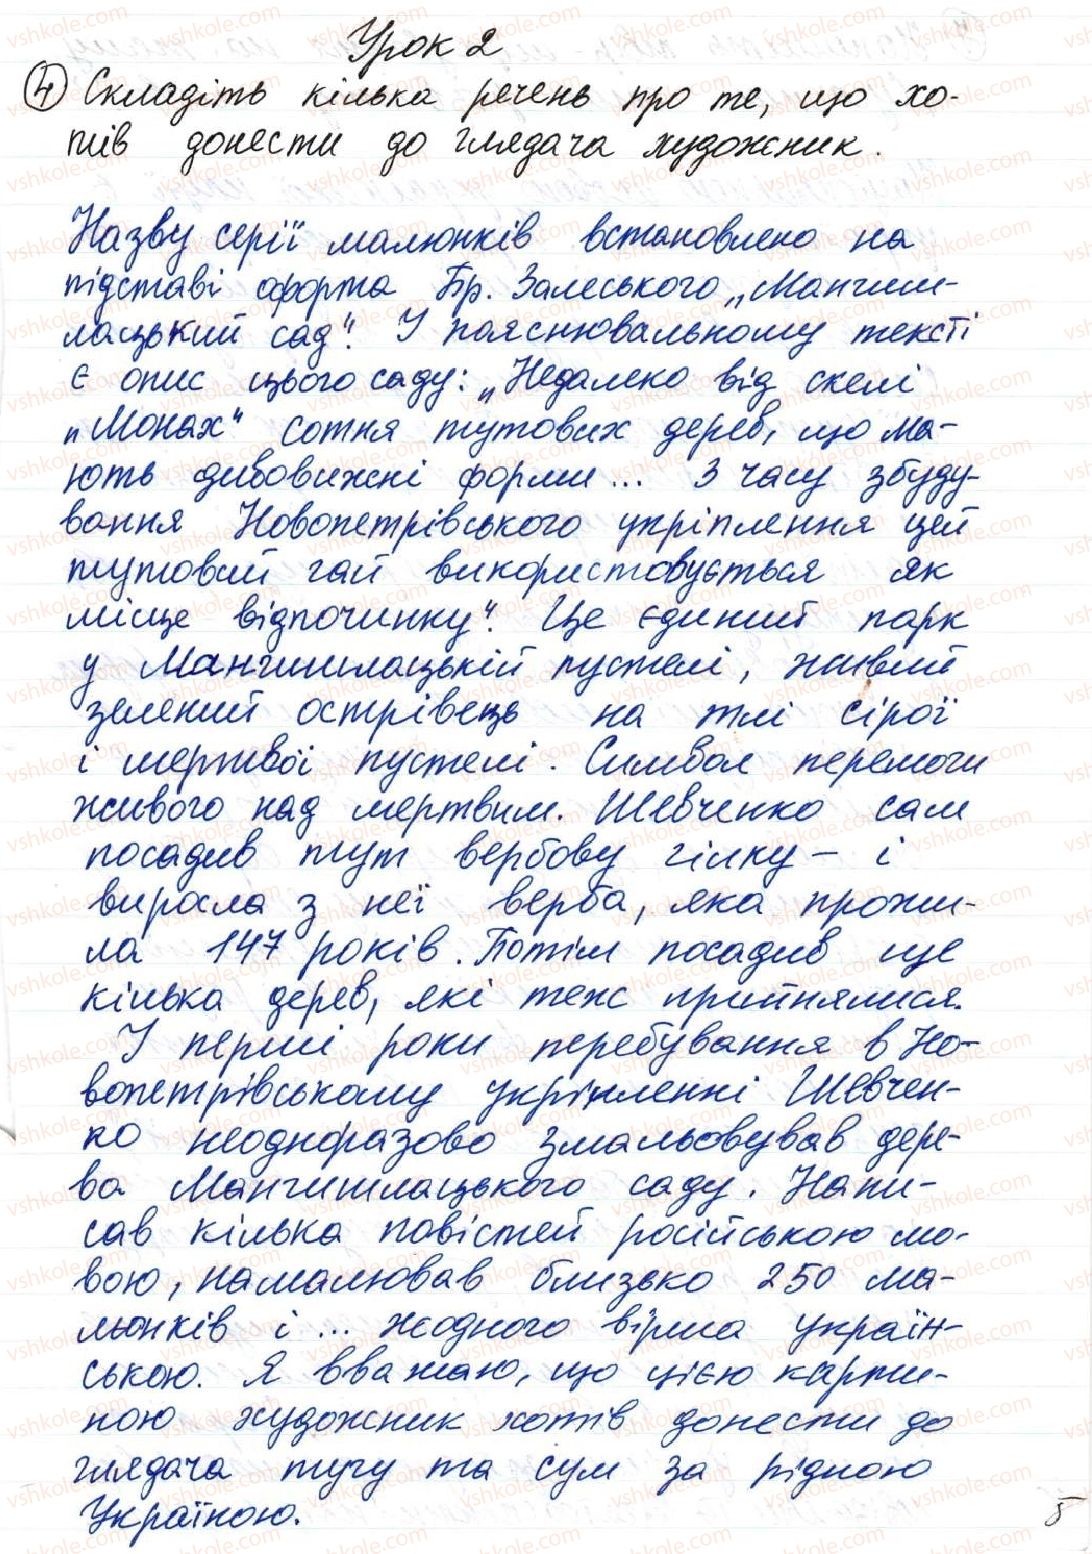 Урок 2
4 Складіть кілька речень про те, що хо-
тів донести до глядача художник.
Назву серії малюнків встановлено на
підставі офорта Бр. Залеського „Мангиш-
лацький сад". У пояснювальному тексті
є опис цього саду: „Недалеко від скелі
„Монах" сотня тутових дерев, що ма-
ють дивовижні форми... З часу збуду-
вання Новопетрівського укріплення цей
тутовий гай використовується як
місце відпочинку". Це єдиний парк
у Мангишлацькій пустелі, живий
зелений острівець на тлі сірої
і мертвої пустелі. Символ перемоги
живого над мертвим. Шевченко сам
посадив тут вербову гілку – і
виросла з неї верба, яка прожи-
ла 147 років. Потім посадив ще
кілька дерев, які теж прийнялися.
У перші роки перебування в Но-
вопетрівському укріпленні Шевчен-
ко неодноразово змальовував дере-
ва Мангишлацького саду. Напи-
сав кілька повістей російською мо-
вою, намалював близько 250 ма-
люнків і ... жодного вірша україн-
ською. Я вважаю, що цією карти-
ною художник хотів донести до
глядача тугу та сум за рідною
Україною.
5